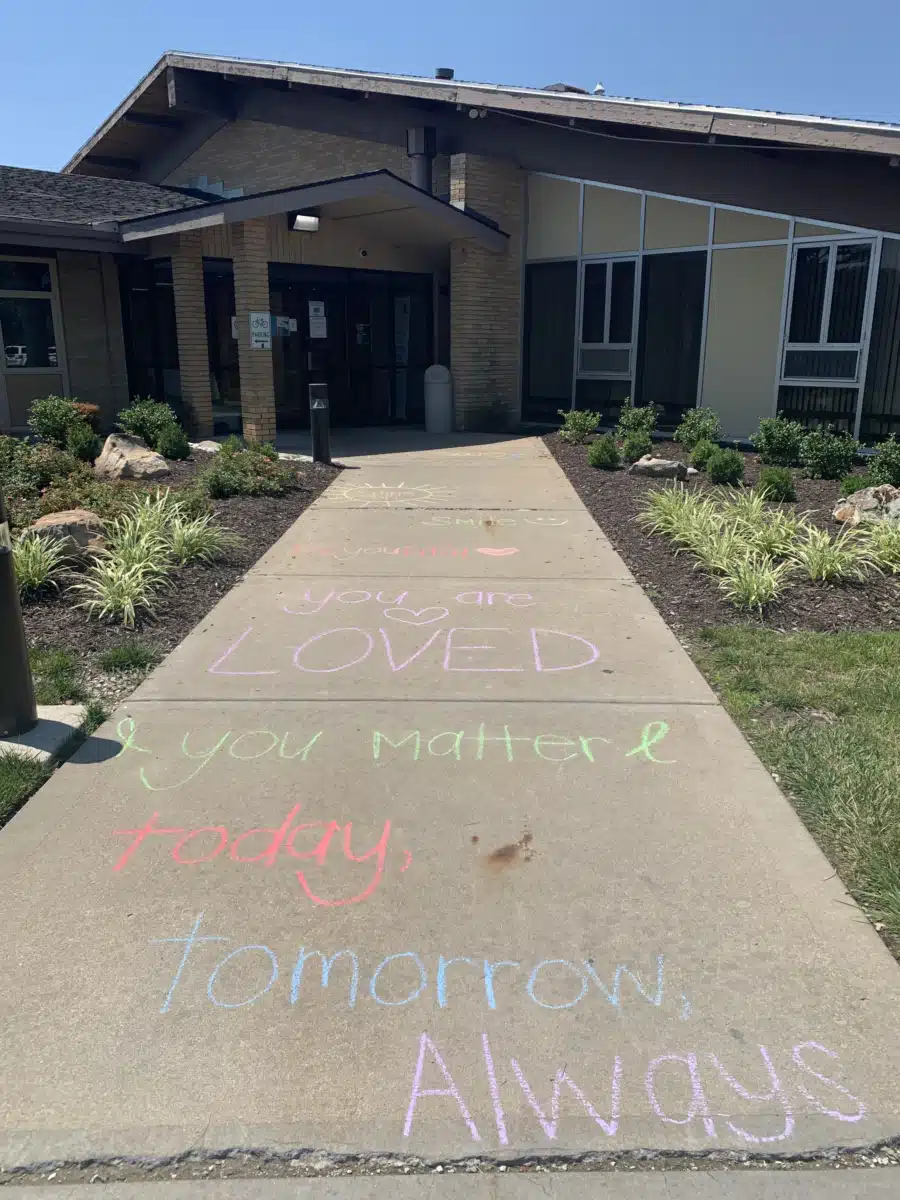 PARKING
Smile
you are
LOVED
& you Matter &
today,
tomorrow,
Always